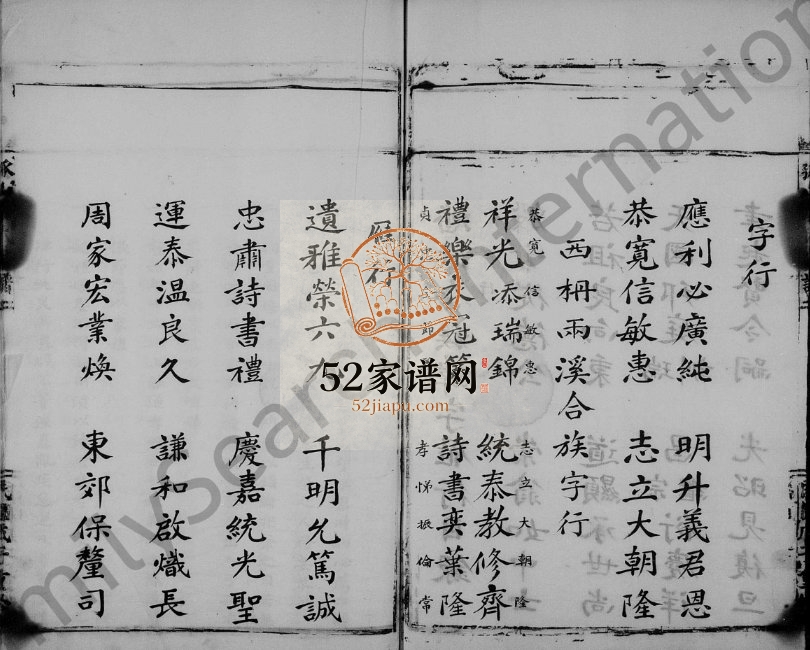 字行
應利必廣純 明升義君恩
恭寬信敏惠 志立大朝隆
西柵雨溪合族字行
恭寬信敏惠 志立大朝隆
祥光添瑞錦 統泰教修齊
禮樂衣冠 詩書奕葉隆
貞 節 孝悌振倫常
行
遺雅榮六九 千明允篤誠
忠肅詩書禮 慶嘉統光聖
運泰温良久 謙和啟熾長
周家宏業煥 東郊保釐司
52家谱网
52jiapu.com